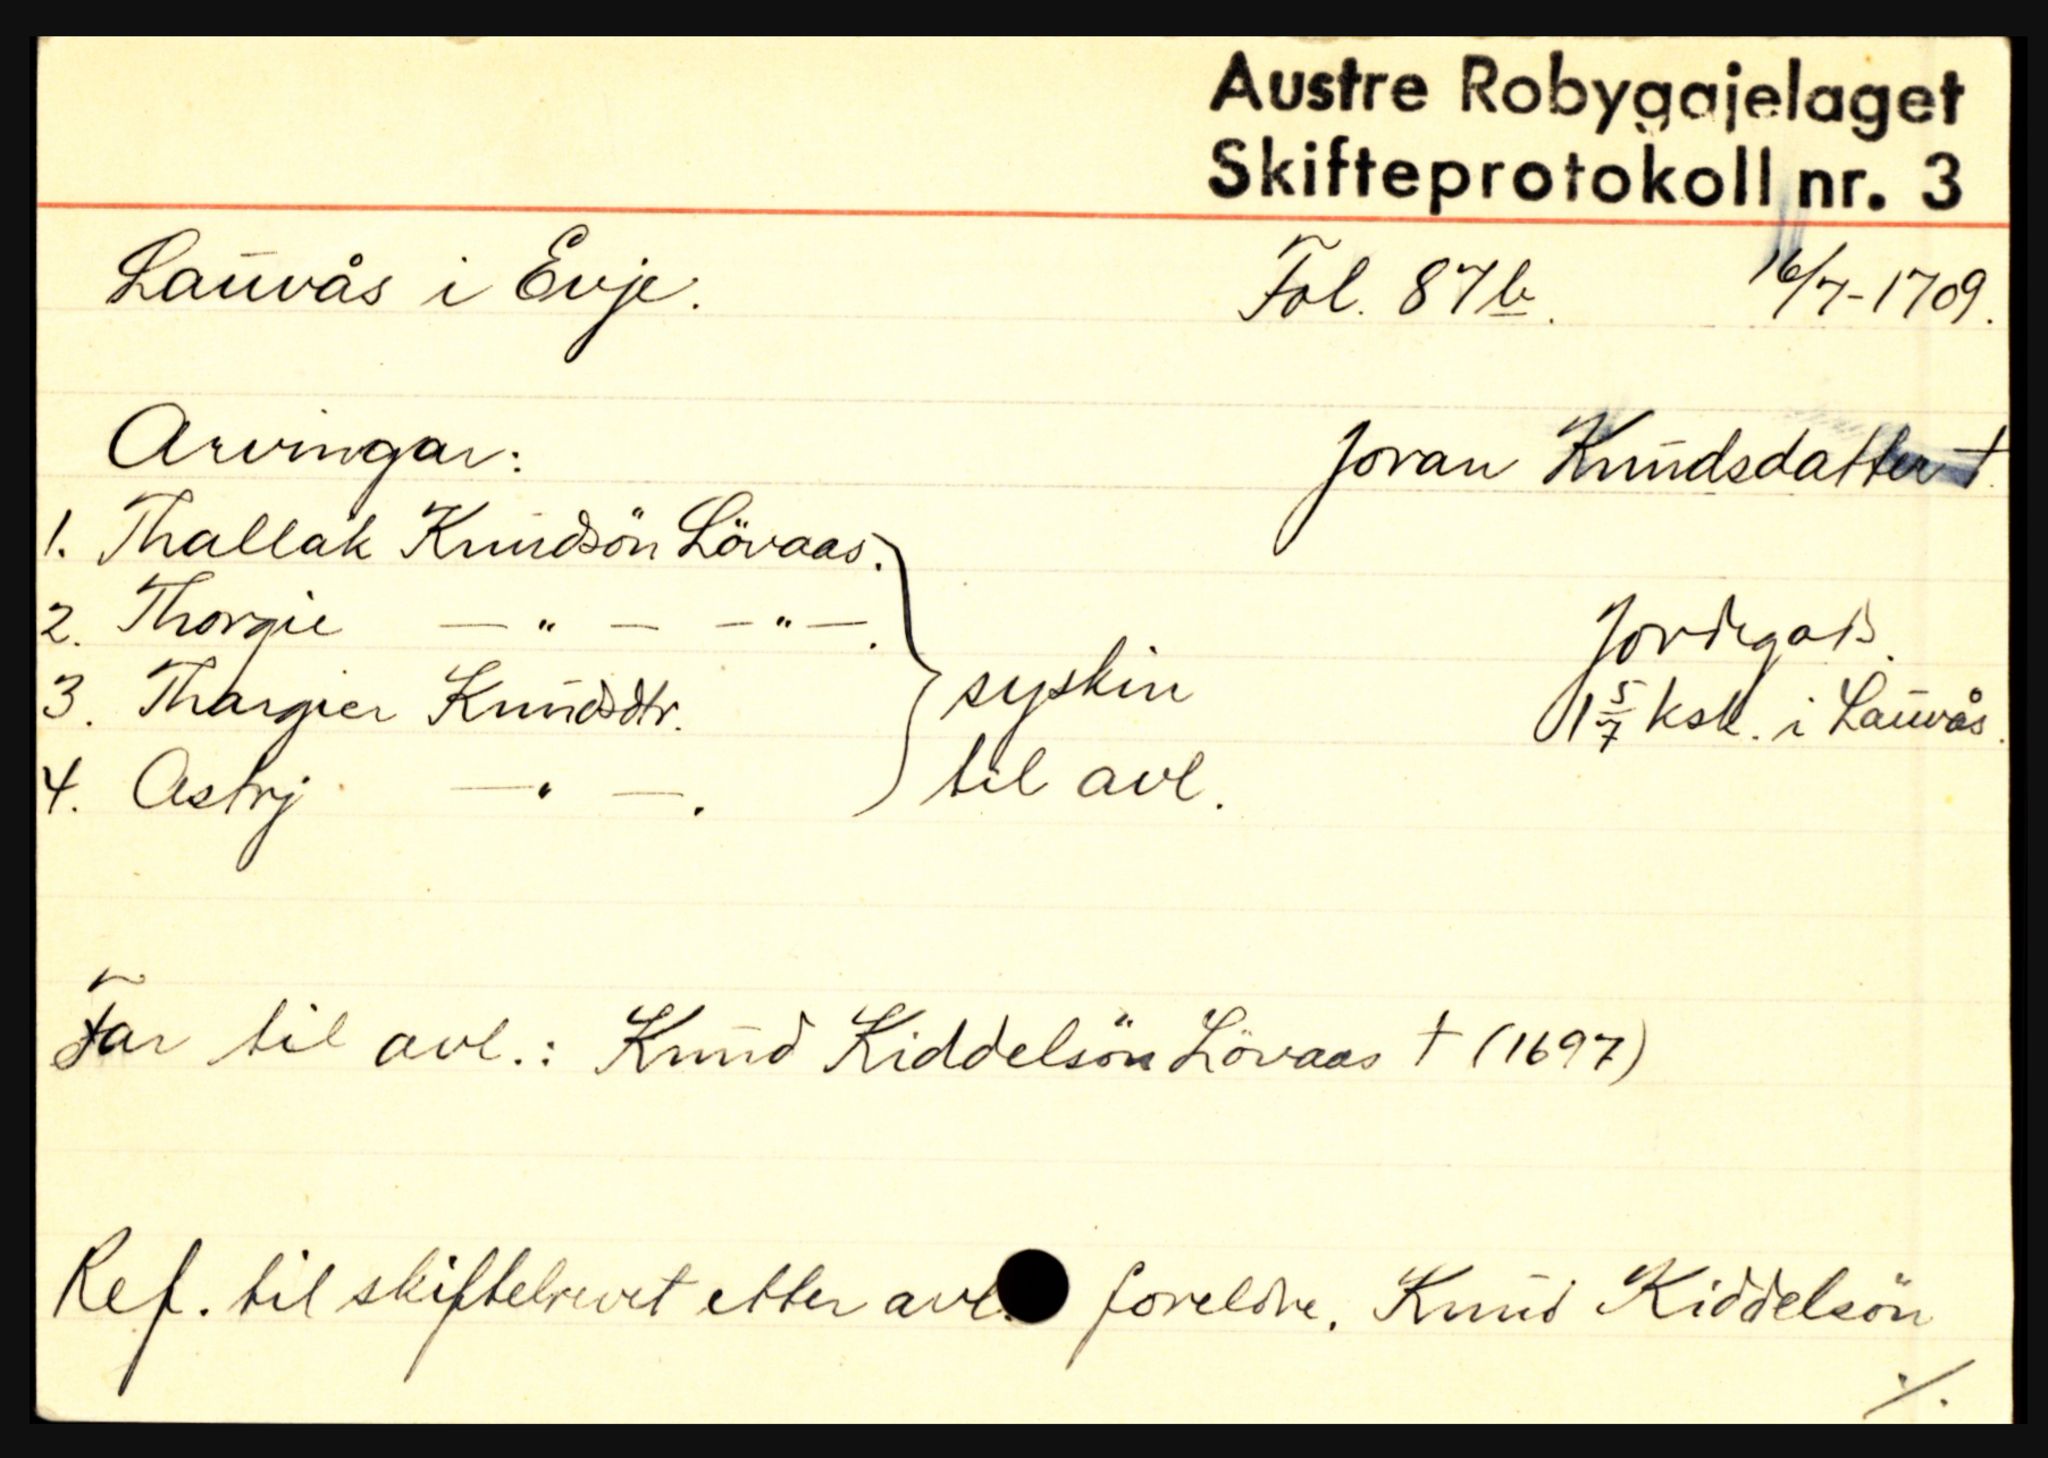 Austre Robygajelaget
Skifteprotokoll nr. 3
Lauvås i Evje. Fol. 87b. 16/7-1709.
Arvingar: Joran Knudsdatter †.
1. Thallak Knudsön Lövaas.
2. Thorgie — " — — " —.
3. Thargier Knudsdtr.
4. Astrj — " —.
syskin
til avl.
Jordegods.
1 5/7 ksk. i Lauvås.
Far til avl.: Knud Kiddelsön Lövaas † (1697)
Ref. til skiftebrevet etter avl. foreldre. Knud Kiddelsön
./.